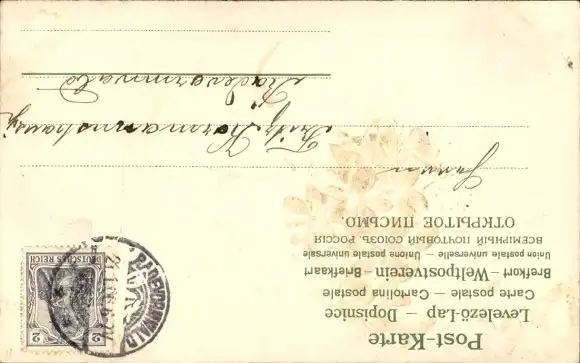 Post-Karte
Levelező-Lap – Dopisnice
Carte postale – Cartolina postale
Brefkort – Weltpostverein – Briefkaart
Union postale universelle – Unione postale universale
ВСЕМІРНЫЙ ПОЧТОВЫЙ СОЮЗЪ. РОССІЯ
ОТКРЫТОЕ ПИСЬМО.
Fritz Hermannshaus
Radevormwald
RADEVORMWALD
DEUTSCHES REICH
2 2